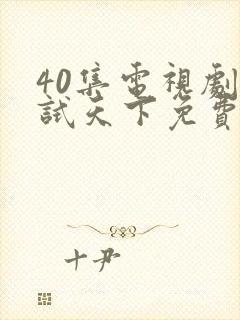 40集電視劇
試天下免費
十尹